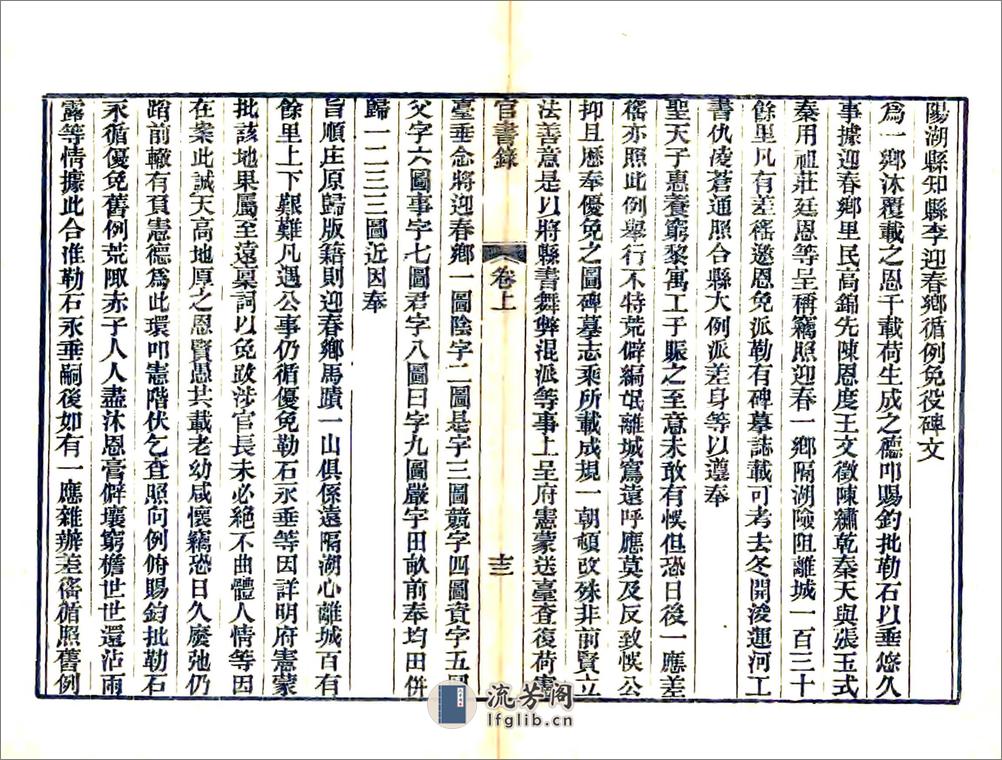 陽湖縣知縣李迎春鄉循例免役碑文
爲一鄉沐覆載之恩千載荷生成之德叩賜鈞批勒石以垂悠久
事據迎春鄉里民高錦先陳恩度王文徵陳繡乾秦天與張玉式
秦用祖莊廷恩等呈稱竊照迎春一鄉隔湖險阻離城一百三十
餘里凡有差徭邀恩免派勒有碑摹誌載可考去冬開浚運河工
書仇凌蒼通照合縣大例派差身等以遵奉
聖天子惠養窮黎寓工于賑之至意未敢有悞但恐日後一應差
徭亦照此例舉行不特荒僻編氓離城寫遠呼應莫及反致悞公
抑且歷奉優免之圖碑摹志乘所載成規一朝頓改殊非前賢立
法善意是以將縣書舞弊混派等事上呈府憲蒙送臺查復荷憲
官書錄
卷上
十三
臺垂念將迎春鄉一圖陰字二圖是字三圖競字四圖資字五圖
父字六圖事字七圖君字八圖曰字九圖嚴字田畝前奉均田併
歸一二三三圖近因奉
旨順庄原歸版籍則迎春鄉馬蹟一山俱係遠隔湖心離城百有
餘里上下艱難凡遇公事仍循優免勒石永垂等因詳明府憲蒙
批該地果屬至遠稟詞以免跋涉官長未必絕不曲體人情等因
在案此誠天高地厚之恩賢愚共載老幼咸懷竊恐日久廢弛仍
蹈前轍有負憲德爲此環叩憲階伏乞查照向例俯賜鈞批勒石
永循優免舊例荒陬赤子人人盡沐恩膏僻壤窮檐世世還沾雨
露等情據此合准勒石永垂嗣後如有一應雜辦差徭循照舊例
流芳閣
lfglib.cn